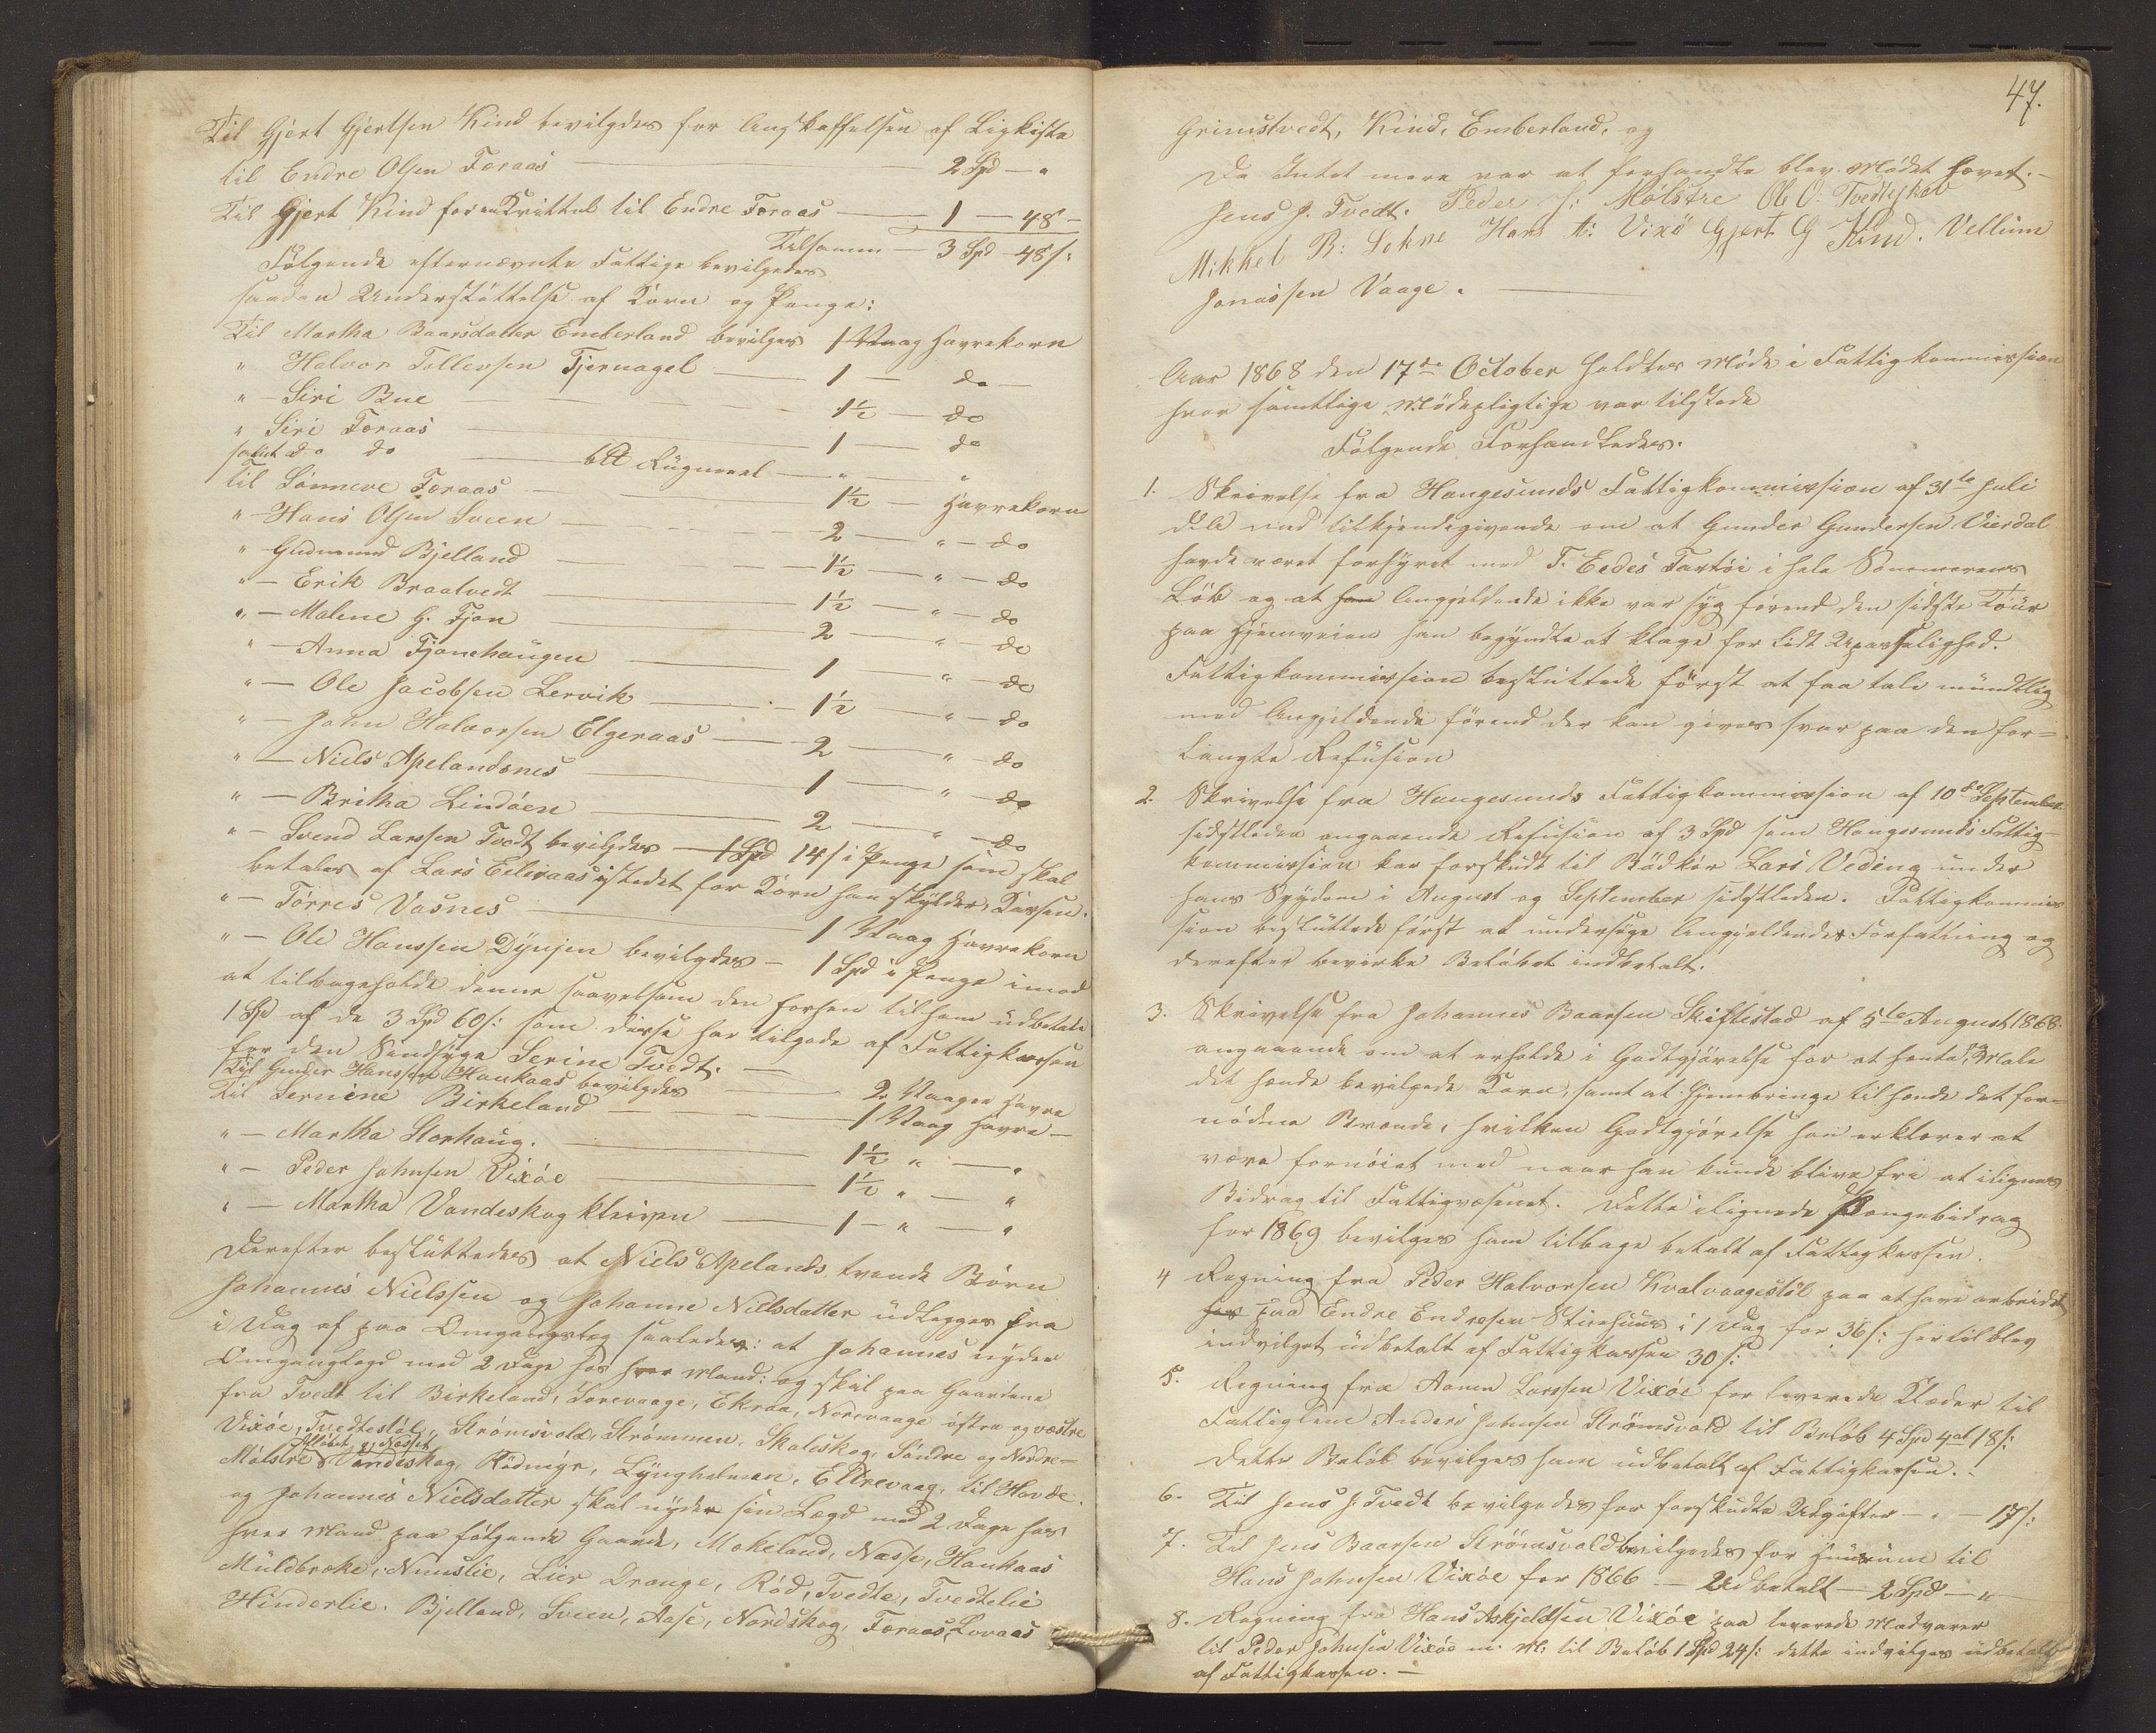 Til Gjert Gjertsen Kind bevilgdes for Anskaffelsen af Ligkiste
til Endre Olsen Føraas — 2 Spd — "
Til Gjert Kind for en Drittel til Endre Føraas — 1 — 48 —
Tilsamen — 3 Spd — 48 s:
Følgende efternævnte Fattige bevilgedes
saadan Understøttelse af Korn og Penge:
Til Martha Baarsdatter Emberland bevilges 1 Vaag Havrekorn
" Halvor Tollevsen Tjernagel — 1 — do —
" — Siri Bue — 1½ — do
" Siri Føraas — 1 — do
samt do do — 6 ℔ Rugmeel — " — "
til Sønneve Føraas — 1½ — Havrekorn
" — Hans Olsen Sveen — 2 — " — do
" Gudmund Bjelland — 1½ — " — do
" — Erik Braatvedt — 1½ — " — do
" — Malene G. Fjon — 2 — " — do
" — Anna Fjonehaugen — 1 — " — do
" — Ole Jacobsen Lervik — 1½ — " — do
" — John Halvorsen Elgeraas — 2 — " — do
" — Niels Apelandsnes — 1 — " — do
" — Britha Lindøen — 2 — " — do
" — Svend Larssen Tvedt bevilgdes — 1 Spd 14 s i Penge som skal
betales af Lars Eilivaas istedet for Korn han skylder Kassen.
" — Tørres Vasnes — 1 Vaag Havrekorn
" — Ole Hanssen Dynjen bevilgdes — 1 Spd i Penge imod
at tilbageholde denne saavelsom den forhen til ham udbetalt
1 Spd af de 3 Spd 60 s: som disse har tilgode af Fattigkassen
for den Sindsyge Serine Tvedt. —
Til Gunder Hanssen Haukaas bevilgdes — 2 Vaager Havre
Til Sernine Birkeland — 1 Vaag Havre —
" — Martha Storhaug. — 1½ " — "
" — Peder Johnsen Vixøe — 1½ " — "
" — Martha Vandeskog kleiven — 1 — " — "
Derefter besluttedes at Niels Apelands tvende Børn
Johannes Nielssen og Johanne Nielsdatter udlegges fra
i Dag af paa Omgangsleg saaledes: at Johannes nyder
Omganglegd med 2 Dage hos hver Mand: og skal paa Gaardene
fra Tvedt til Birkeland, Sørevaage, Ekraa, Norevaage østre og væstre
Vixøe, Tvedtestøl, Strømsvold, Strømmen, Skaleskog, Søndre og Nordre —
Mølstre Vandeskog, Rødmyr, Lyngholmen, Eltrevaag, til Hovde.
og Johannes Nielsdatter skal nyder sin Lægd med 2 Dage hos
hver Mand paa følgende Gaarde, Mokeland, Næsse, Haukaas
Muldbroke, Nunslie, Lier Drange, Rød, Tvedte, Tvedtelie
Hinderlie. Bjelland, Sveen, Aase, Nordskog, Føraas, Lovaas
47.
Grimstvedt, Kind, Emberland, og
Da Intet mere var at forhandle blev Mødet hævet. —
Jens J. Tvedt. Peder J: Mølstre Ol O: Tvedteskov
Mikkel B: Lokne Hans A: Vixø Gjert G Kind. Vellum
Jonassen Vaage. —
Aar 1868 den 17de October holdtes Møde i Fattigkommissionen
hvor samtlige Mødepligtige var tilstede
Følgende Forhandledes.
1. Skrivelse fra Haugesunds Fattigkommission af 31te Juli
dele med tilkjendegivende om at Gunder Gundersen Vierdal
havde været forhyret med T. Eedes Fartøi i hele Sommerens
Løb og at Angjeldende ikke var syg førend den sidste Tour
paa Hjemveien han begyndte at klage for lidt Upasselighed.
Fattigkommission besluttede først at faa tale mundtlig
med Angjeldende førend der kan gives svar paa den for=
langte Refusion
2. Skrivelse fra Haugesunds Fattigkommission af 10de September
sidstleden angaaende Refusion af 3 Spd som Haugesunds Fattig
kommission har forskudt til Bødkor Lars Veding under
hans Sygdom i August og September sidstleden. Fattigkommis
sion besluttede først at undersøge Angjeldendes Forfatning og
derefter bevirke Beløbet indbetalt.
3. Skrivelse fra Johannes Baarsen Skiftestad af 5te August 1868.
angaaende om at erholde i Godtgjørelse for at hente, og Male
det hende bevilgede Korn, samt at hjembringe til hende det for=
nødne Brænde, hvilken Godtgjørelse han erklærer at
være fornøiet med naar han kunde blive fri at ilignes
Bidrag til Fattigvæsenet. Dette ilignede Pengebidrag
for 1869 bevilges ham tilbage betalt af Fattigkassen.
4 Regning fra Peder Halvorsen Kvalvaagestøl paa at have arbeidet
hos paa Endre Endresen Stuehuus i 1 Dag for 36 s: hertil blev
indvilget udbetalt af Fattigkassen 30 s:
5. Regning fra Aamu Larssen Vixøe for leverede Klæder til
Fattiglem Anders Johnsen Strømsvold til Beløb 4 Spd 4 ort 18 s:
Dette Beløb bevilges ham udbetalt af Fattigkassen. —
6. Til Jens J. Tvedt bevilgedes for forskudte Udgifter — " — 17 s:
7. Til Jens Baarsen Strømsvold bevilgedes for Huusrum til
Hans Johnsen Vixøe for 1866 — Udbetalt — 2 Spd — "
8. Regning fra Hans Askjeldsen Vixøe paa leverede Madvarer
til Peder Johnsen Vixøe m. M. til Beløb 1 Spd 24 s: dette indvilges udbetalt
af Fattigkassen. —